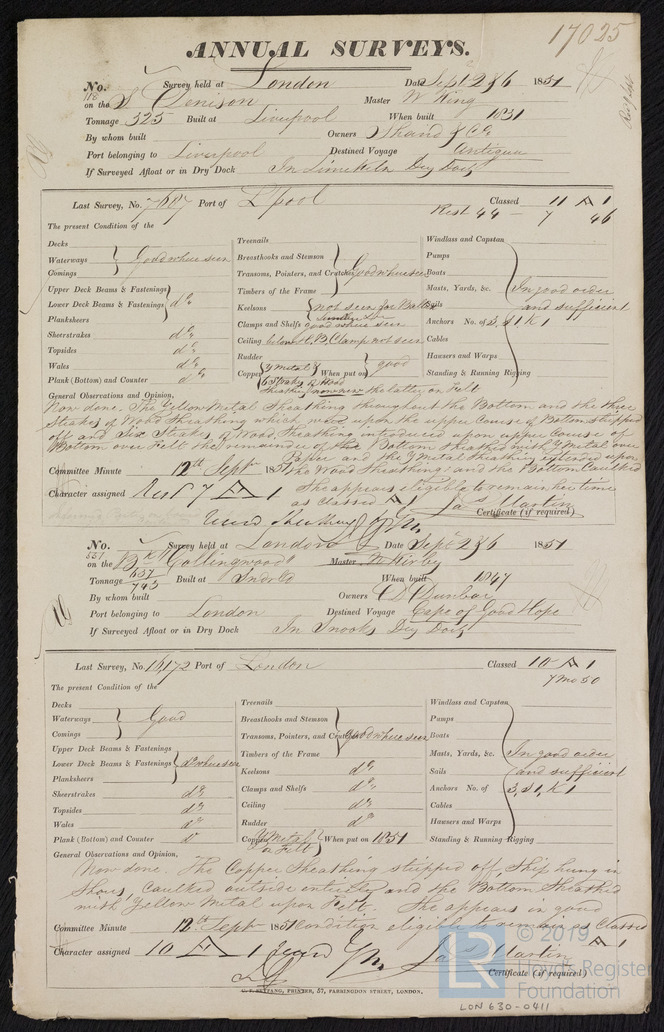 17025
ANNUAL SURVEYS.
No. 118 Survey held at London Date Sept 2 & 6 1851
on the S Denison Master W King
Tonnage 325 Built at Liverpool When built 1831
By whom built Owners Shand & Co
Port belonging to Liverpool Destined Voyage Antigua
If Surveyed Afloat or in Dry Dock In Limekiln Dry Dock
Last Survey, No. 7687 Port of L'pool Classed 11 A 1
Rest 44 - 7 46
The present Condition of the
Decks
Waterways
Comings
Good where seen
Upper Deck Beams & Fastenings
Lower Deck Beams & Fastenings
Planksheers
do
Sheerstrakes do
Topsides do
Wales do
Plank (Bottom) and Counter do
Treenails
Breasthooks and Stemson
Transoms, Pointers, and Crutches
Timbers of the Frame
Good where seen
Keelsons not seen for
Clamps and Shelfs good where seen
Ceiling below H. B. Clamp not seen
Rudder
Copper Y Metal & When put on good
6 Straks of Wood
Sheathing now new the latter on Felt
Windlass and Capstan
Pumps
Boats
Masts, Yards, &c.
Sails
In good order and sufficient
Anchors No. of 3, S1, K1
Cables
Hawsers and Warps
Standing & Running Rigging
General Observations and Opinion,
Now done. The Yellow Metal Sheathing throughout the Bottom and the three
Strakes of Wood Sheathing which were upon the upper Course of Bottom stripped
off and Six Strakes of Wood Sheathing introduced upon upper Course of
Bottom over Felt the remainder of the Bottom Sheathed with Y Metal over
Paper and the Y Metal Sheathing extended upon
Committee Minute 12th Septr 1851 the Wood Sheathing: and the Bottom Caulked
She appears eligible to remain her time
Character assigned Rest 7 A 1 as Classed A 1
Jas Martin
Certificate (if required)
No. 551 Survey held at London Date Sept 2 & 6 1851
on the Bk Collingwood Master W Kirby
Tonnage 637 743 Built at Sndrld When built 1847
By whom built Owners D Dunbar
Port belonging to London Destined Voyage Cape of Good Hope
If Surveyed Afloat or in Dry Dock In Snooks Dry Dock
Last Survey, No. 16,172 Port of London Classed 10 A 1
7 Mo 50
The present Condition of the
Decks
Waterways
Comings
Good
Upper Deck Beams & Fastenings
Lower Deck Beams & Fastenings
Planksheers
do where seen
Sheerstrakes do
Topsides do
Wales do
Plank (Bottom) and Counter do
Treenails
Breasthooks and Stemson
Transoms, Pointers, and Crutches
Timbers of the Frame
Good where seen
Keelsons do
Clamps and Shelfs do
Ceiling do
Rudder do
Copper Y Metal on Felt When put on 1851
Windlass and Capstan
Pumps
Boats
Masts, Yards, &c.
Sails
In good order and sufficient
Anchors No. of 3, S1, K1
Cables
Hawsers and Warps
Standing & Running Rigging
General Observations and Opinion,
Now done. The Copper Sheathing stripped off, Ship hung in
Shores, Caulked outside entirely and the Bottom Sheathed
with Yellow Metal upon Felt. She appears in good
Committee Minute 12th Septr 1851 Condition eligible to remain as Classed
A 1
Character assigned 10 A 1
Jas Martin
Certificate (if required)
C. F. SEYFANG, PRINTER, 57, FARRINGDON STREET, LONDON,
LR © 2019
Lloyd's Register
Foundation
LON 630-0411